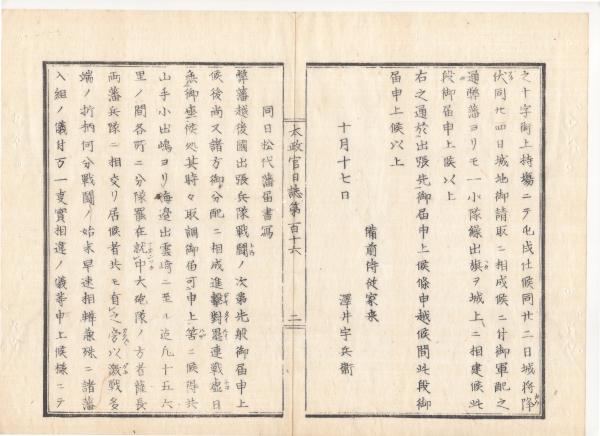 之十字街上持場ニテ屯戍仕候同廿二日城将降
伏同廿四日城地御請取ニ相成候ニ付御軍配之
通弊藩ヨリモ一小隊繰出旗ヲ城上ニ相建候此
段御届申上候以上
右之通於出張先御届申上候條申越候間此段御
届申上候以上
十月十七日
備前侍従家来
澤井宇兵衛
太政官日誌第百十六
二
同日松代藩届書寫
弊藩越後國出張兵隊戰鬪ノ次第先般御届申上
候後尚又諸方御分配ニ相成進撃對壘連戰虚日
無御座候処其時々取調御伯可申上筈ニ候得共
山手小出嶋ヨリ海邊出雲崎ニ至ル迄凡十五六
里ノ間各所ニ分隊罷在就中大砲隊ノ方者薩長
両藩兵隊ニ相交リ居候者共モ有之旁以激戰多
端ノ折柄何分戰鬪ノ始末早速相辨兼殊ニ諸藩
入組ノ儀付万一事實相違ノ儀等申上候様ニテ